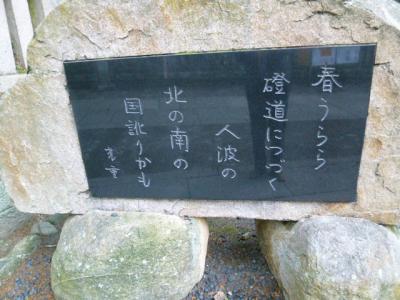 春うらら
磴道につづく
人波の
北の南の
国訛りかも